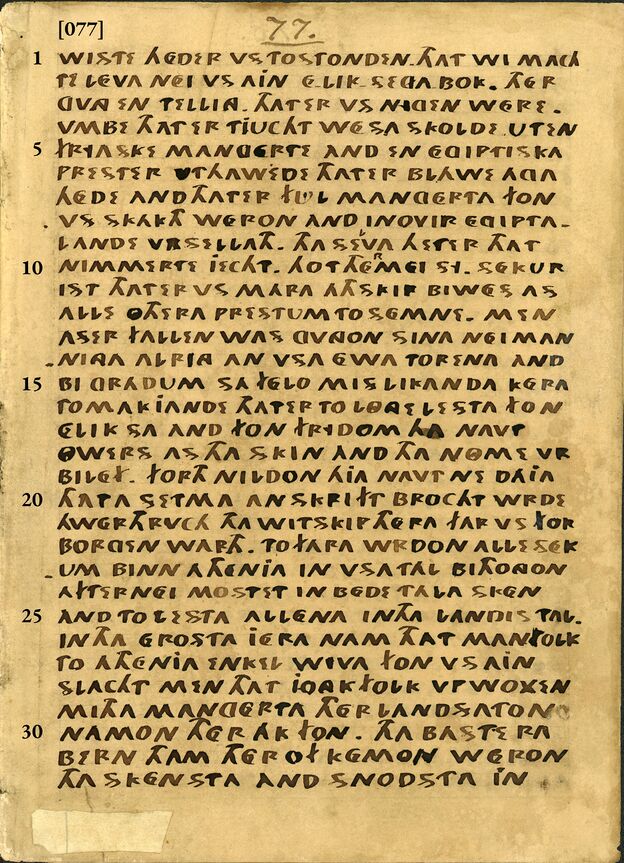 [077]
77.
1 WISTE HEDER VS TO STONDEN. THAT WI MACH
TE LEVA NEI VS AIN ELIK SEGA BOK. THER
GVNG EN TELLINGA. THATER VS NIDEN WERE.
VMBE THATER TIUCHT WESA SKOLDE UTEN
5 FRIASKE MANGERTE AND EN EGIPTISKA
PRESTER UTHAWEDE THATER BLAWE AGA
HEDE AND THATER FUL MANGERTA FON
VS SKAKTH WERON AND IN OVIR EGIPTA-
LANDE VRSELLATH. THA SELVA HETER THAT
10 NIMMERTE IECHT. HO THEM MEI SI. SEKUR
IST THATER VS MARA ATHSKIP BIWES AS
ALLE OTHERA PRESTUM TO SEMNE. MEN
AS ER FALLEN WAS GVNGON SINA NEI MAN
NINGA ALRING AN VSA EWA TORENA AND
15 BI GRADUM SA FELO MISLIKANDA KERA
TO MAKIANDE THATER TO LONGE LESTA FON
ELIK SA AND FON FRIDOM THA NAVT
OWERS AS THA SKIN AND THA NOME VR
BILEF. FORTH NILDON HIA NAVT NE DAIA
20 THAT A SETMA AN SKRIFT BROCHT WRDE
HWERTHRUCH THA WITSKIP THERA FAR VS FOR
BORGEN WARTH. TO FARA WRDON ALLE SEK
UM BINN ATHENIA IN VSA TAL BITHONGON
AFTERNEI MOST ET IN BEDE TALA SKEN
25 AND TO LESTA ALLENA IN THA LANDIS TAL.
IN THA EROSTA IERA NAM THAT MANFOLK
TO ATHENIA ENKEL WIVA FON VS AIN
SLACHT MEN THAT IONGKFOLK VPWOXEN
MITHA MANGERTA THER LANDSATON
30 NAMON THER AK FON. THA BASTERA
BERN THAM THER OF KEMON WERON
THA SKENSTA AND SNODSTA IN